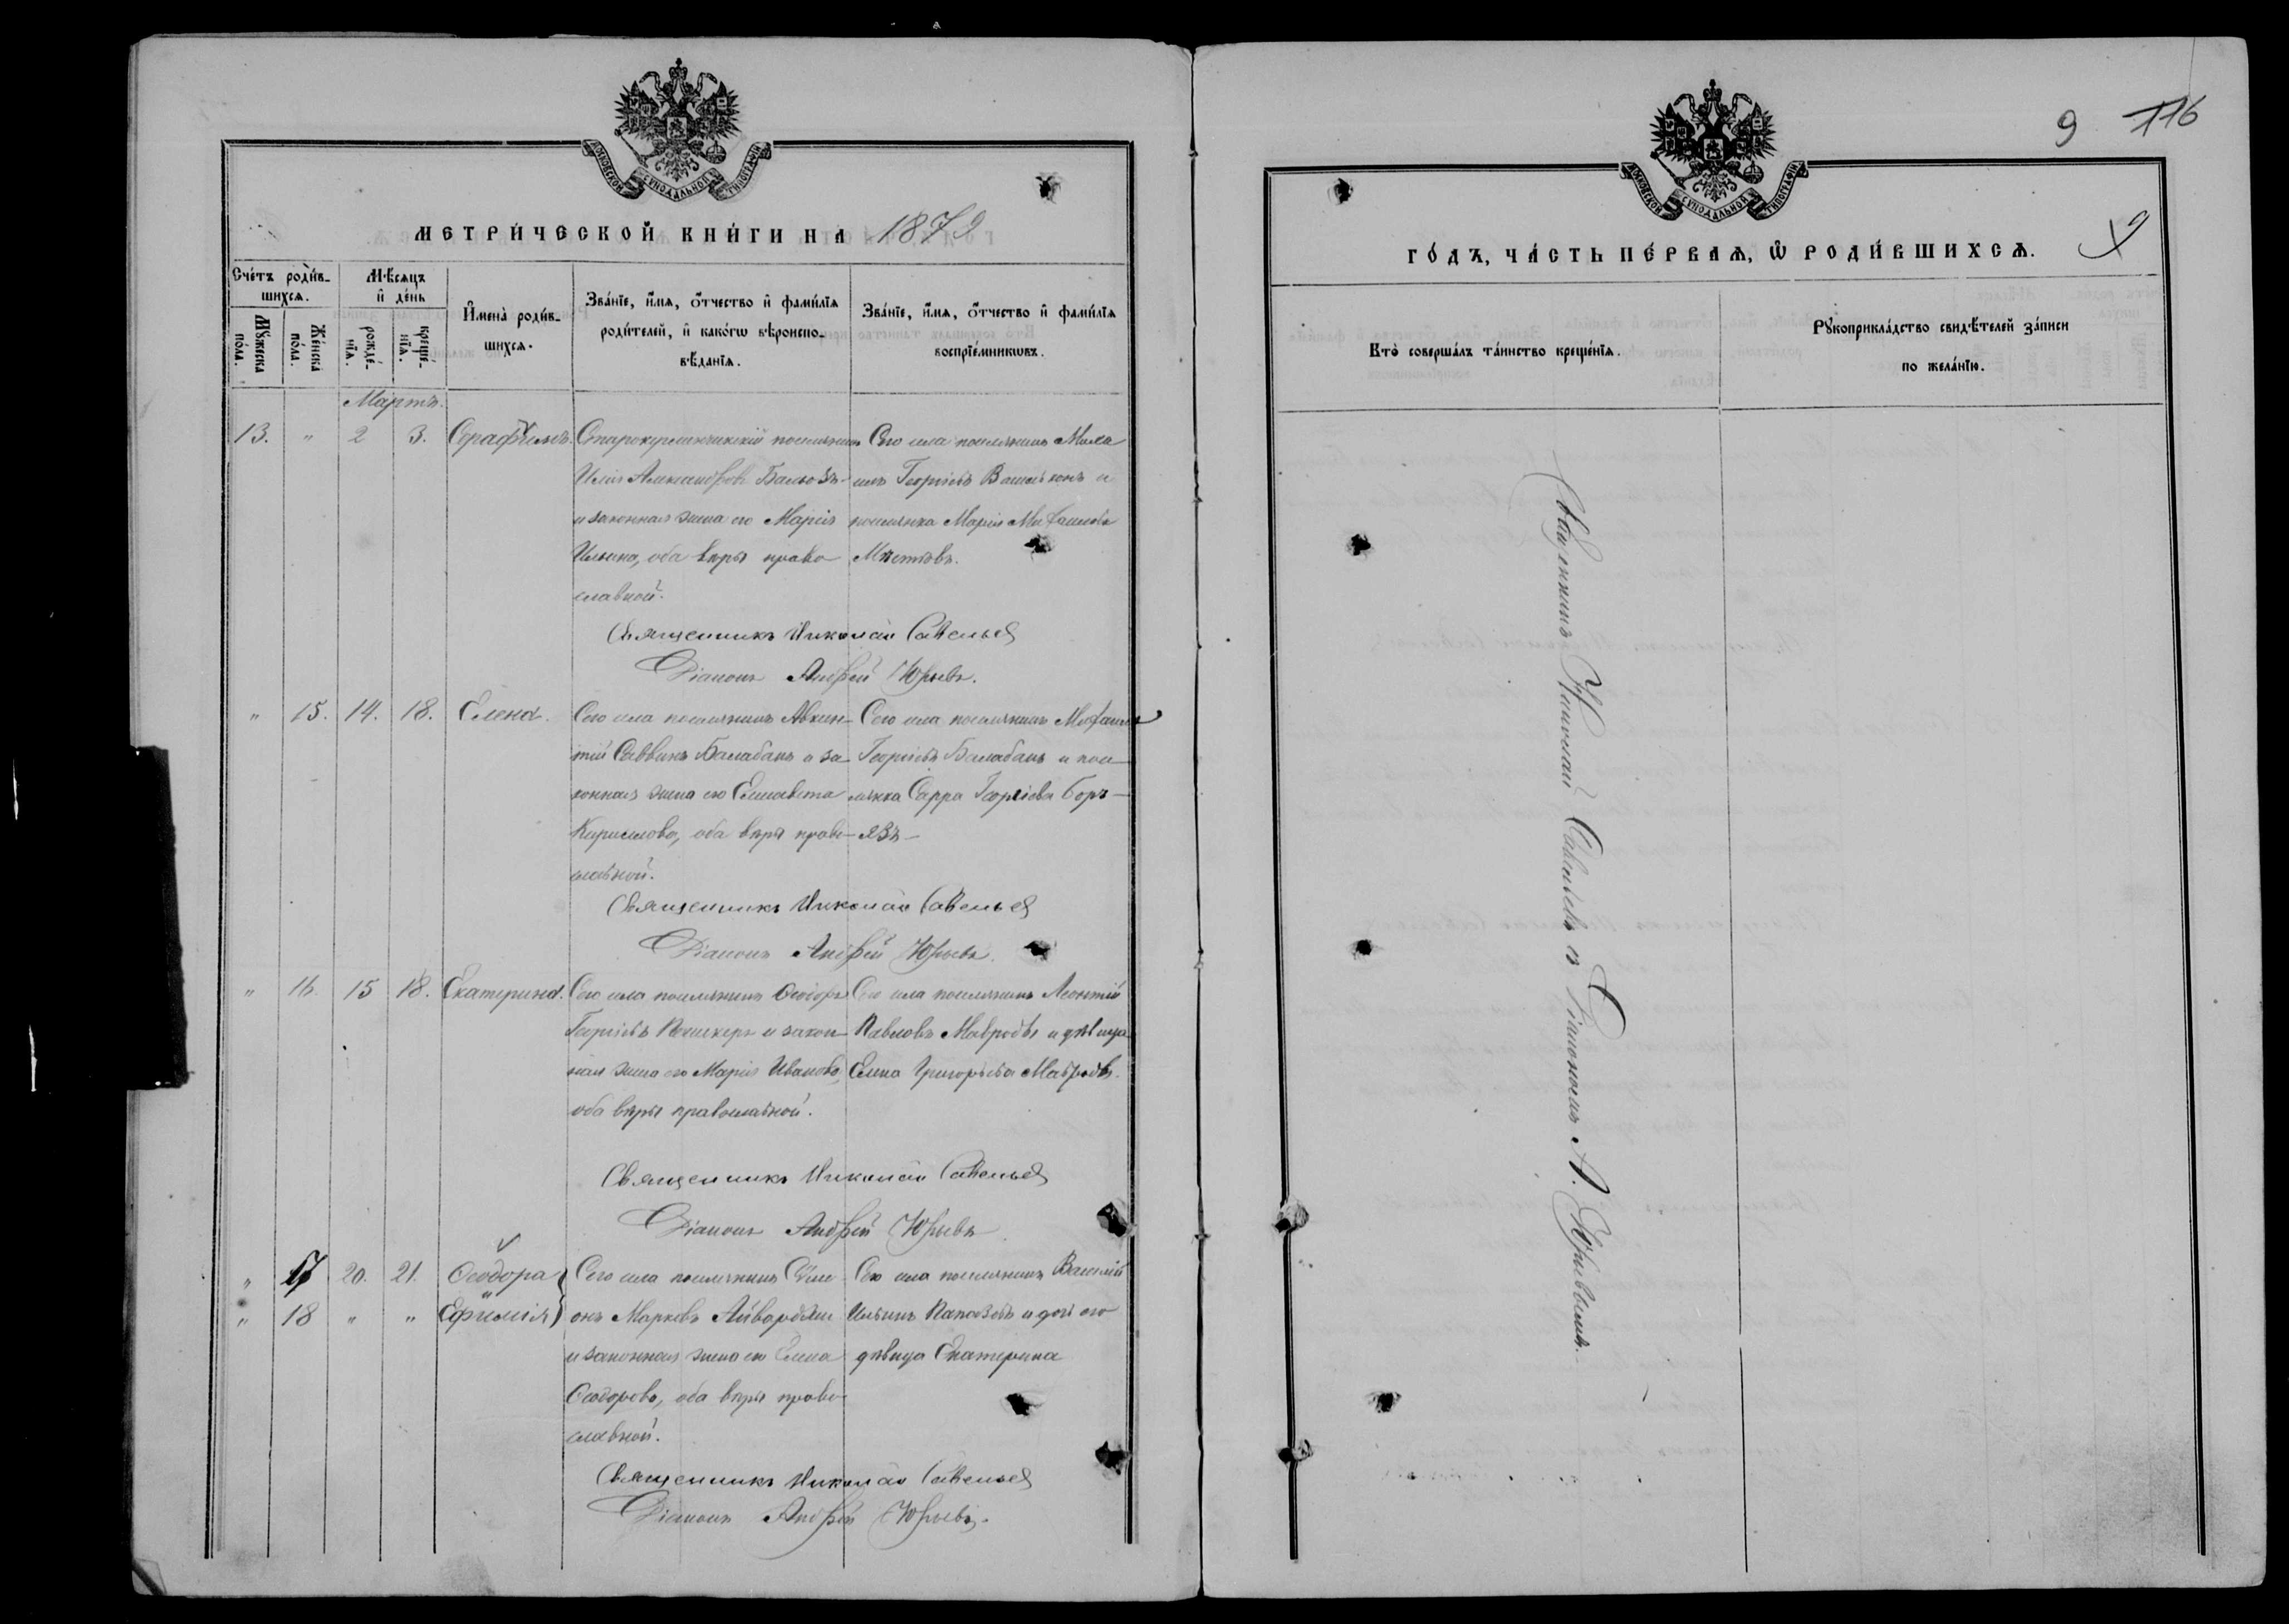 МОСКОВСКОЙ СѴНОДАЛЬНОЙ ТИПОГРАФІИ
МЕТРИ́ЧЕСКОЙ КНИ́ГИ НА 1872
Сче́тъ роди́в-
шихсѧ.
Мꙋ́жеска
по́ла.
Же́нска
по́ла.
Мѣ́сѧцъ
и҆ де́нь
рожде́-
нїѧ.
креще́-
нїѧ.
И҆мена̀ роди́в-
шихсѧ.
Зва́нїе, и҆́мѧ, ѻ҆́тчество и҆ фами́лїѧ
роди́телей, и҆ како́гѡ вѣроиспо-
вѣ́данїѧ.
Зва́нїе, и҆́мѧ, ѻ҆́тчество и҆ фами́лїѧ
воспрїе́мникѡвъ.
Мартъ.
13. " 2 3. Серафимъ.
поселянинъ
Илія Александровъ
и законная жена его Марія
Ильина, оба вѣры право
славной.
Сего села поселянинъ Миха
илъ Георгіевъ и
поселянка Марія Михаилова
Священникъ Николай Савельев
Діаконъ Андрей Юрьевъ.
" 15. 14. 18. Елена.
Сего села поселянинъ Авксен-
тій Саввинъ Балабанъ и за-
конная жена его Елисавета
Кириллова, оба вѣры право-
славной.
Сего села поселянинъ Михаилъ
Георгіевъ Балабанъ и посе-
лянка Сарра Георгіева
Священникъ Николай Савельев
Діаконъ Андрей Юрьевъ.
" 16. 15 18. Екатерина.
Сего села поселянинъ Ѳеодоръ
Георгіевъ и закон-
ная жена его Марія Иванова,
оба вѣры православной.
Сего села поселянинъ Леонтій
Павловъ Мавроди и дѣвица
Елена Григорьева Мавроди.
Священникъ Николай Савельев
Діаконъ Андрей Юрьевъ
" 17 20. 21. Ѳеодора
" 18 " " Ефимія
Сего села поселянинъ Симе
онъ Марковъ
и законная жена его Елена
Ѳеодорова, оба вѣры право-
славной.
Сего села поселянинъ Василій
Ильинъ и дочь его
дѣвица Екатерина
Священникъ Николай Савельев
Діаконъ Андрей Юрьевъ.
9 116
МОСКОВСКОЙ СѴНОДАЛЬНОЙ ТИПОГРАФІИ
ГО́ДЪ, ЧА́СТЬ ПЕ́РВАѦ, Ѽ РОДИ́ВШИХСѦ. 9
Кто̀ соверша́лъ та́инство креще́нїѧ.
Рꙋкоприкла́дство свидѣ́телей за́писи
по жела́нїю.
Священникъ Николай Савельевъ съ Діакономъ А. Юрьевымъ.